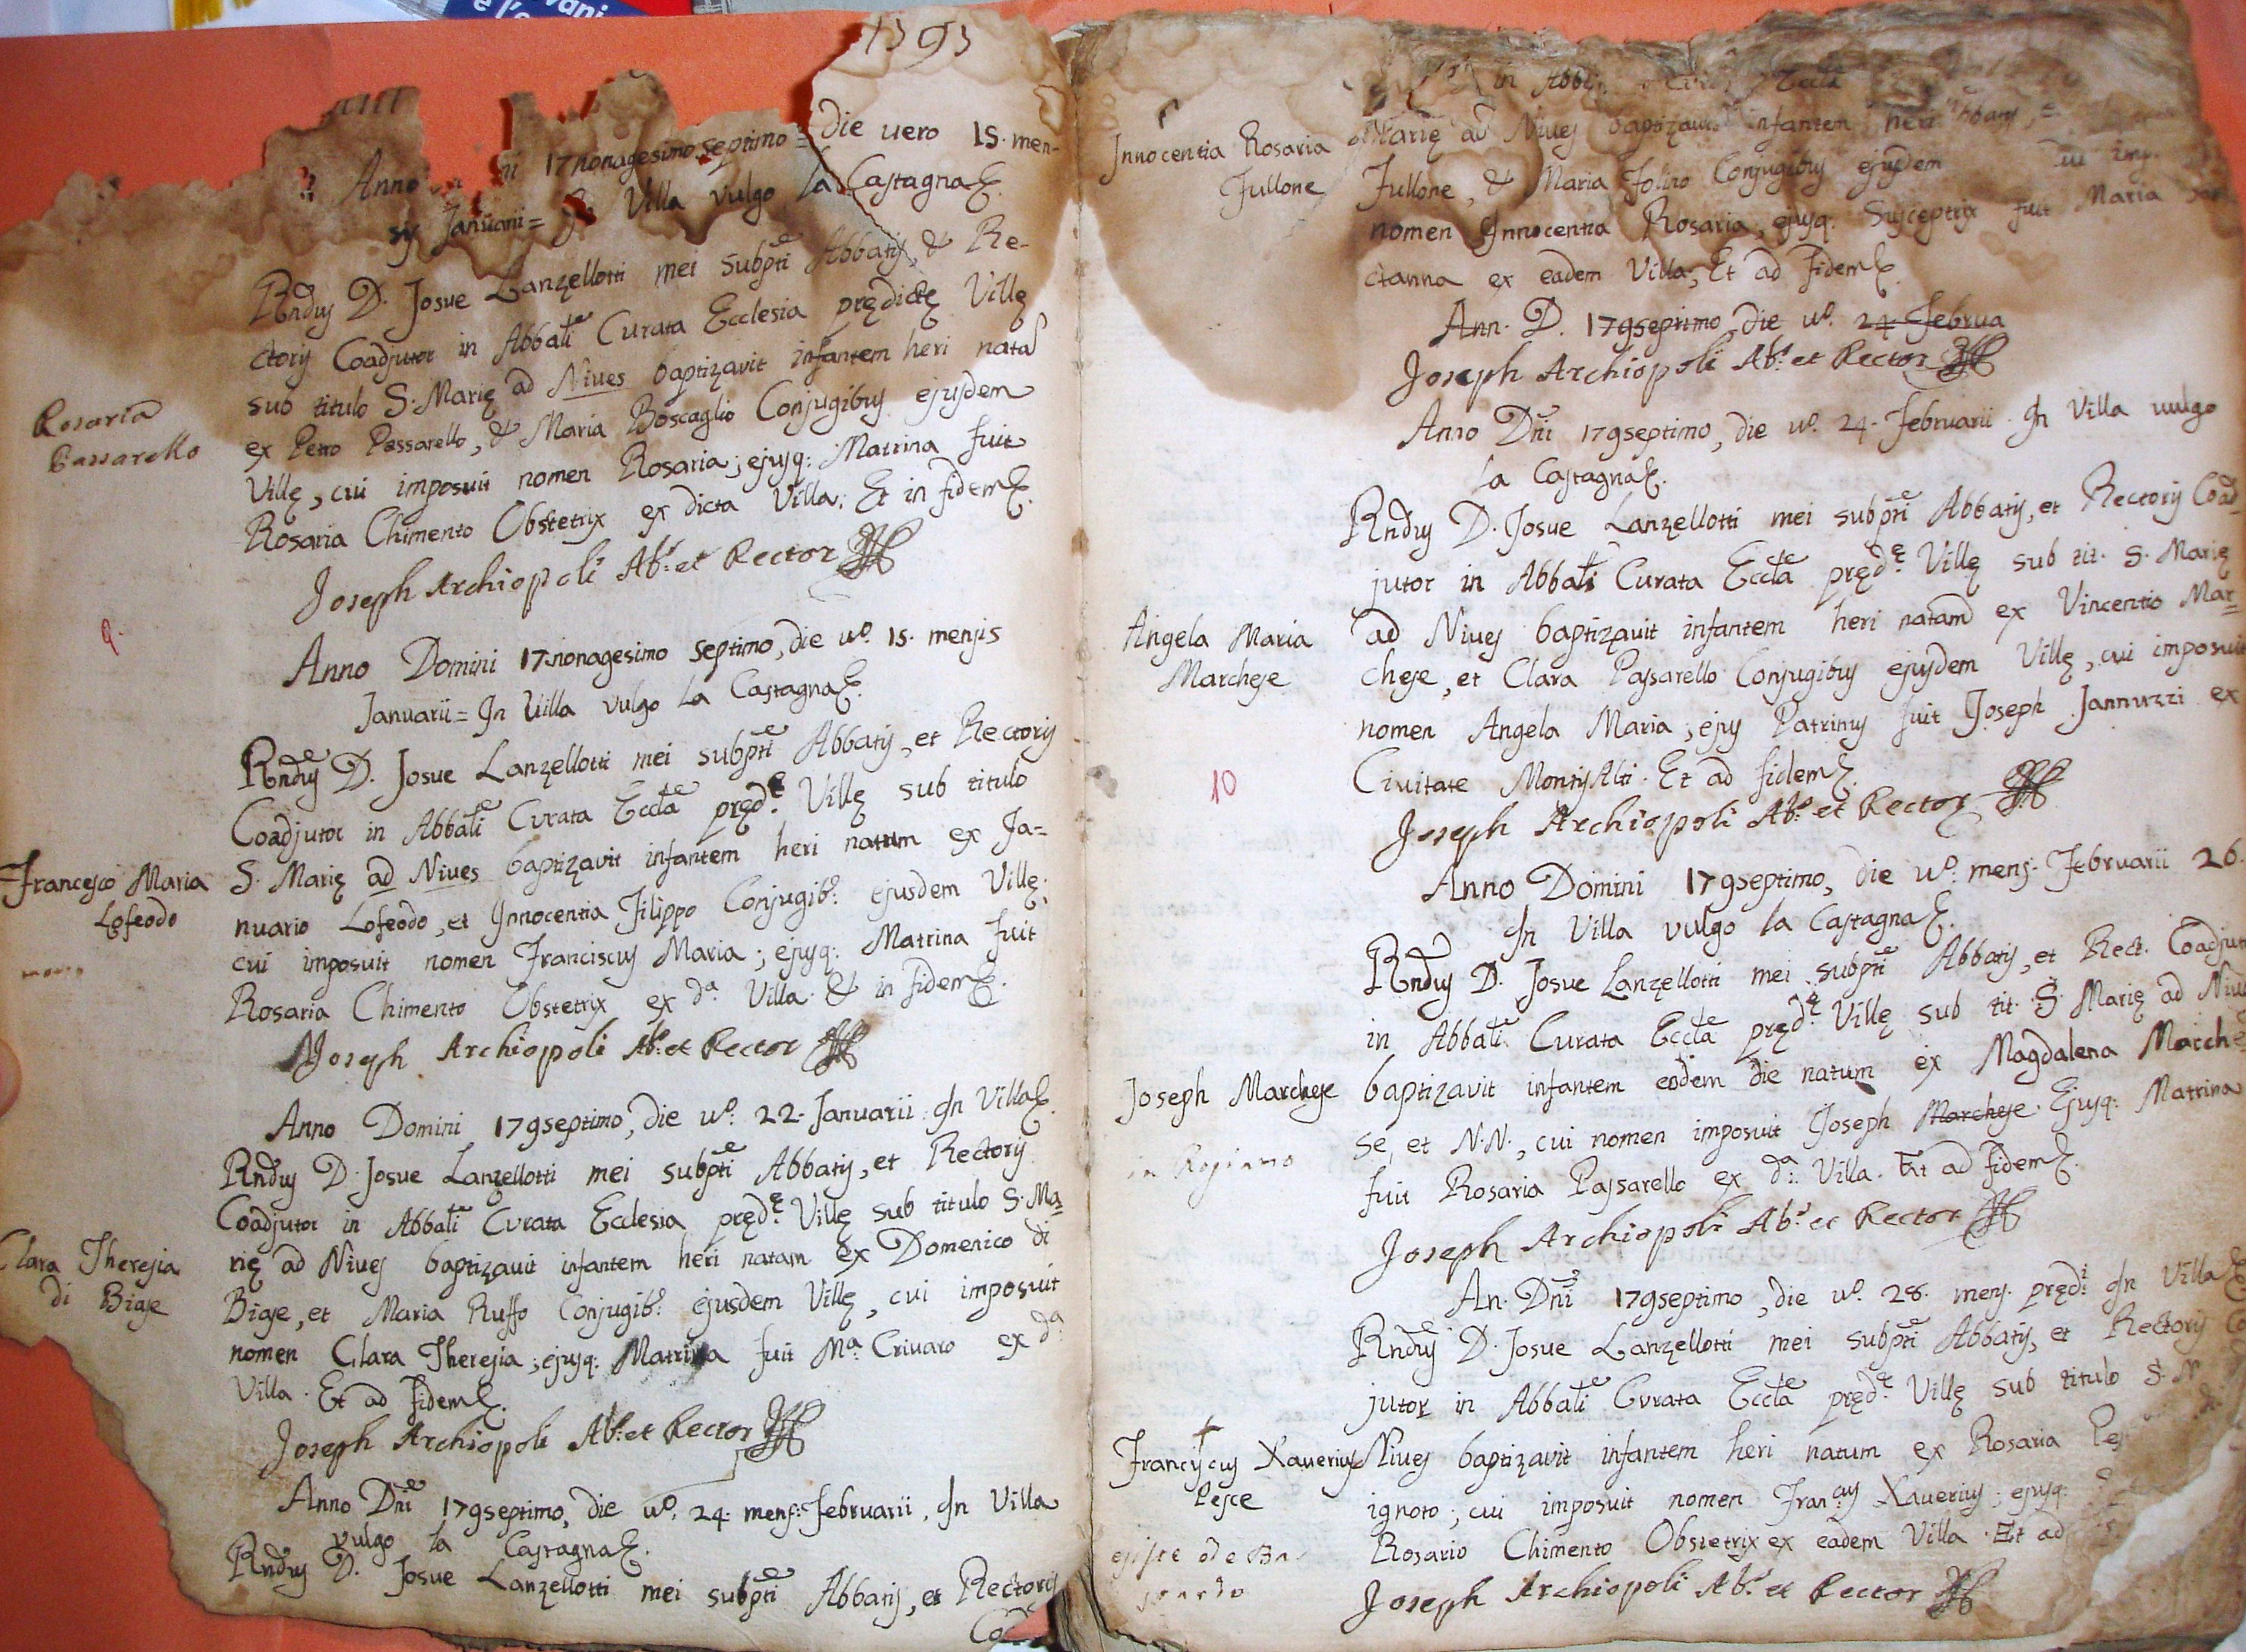 Anno 17nonagesimo septimo= die uero 15. men-
sis Januarii= Villa vulgo la Castagna&.
Rndus D. Josue Lanzellotti mei subptī Abbatis, & Re-
ctoris Coadjutor in Abbali Curata Ecclesia prędictę Villę
sub titulo S. Marię ad Niues baptizavit infantem heri natā
ex Petro Passarello, & Maria Boscaglio Conjugibus ejusdem
Villę, cui imposuit nomen Rosaria; ejusq: Matrina fuit
Rosaria Chimento Obstetrix ex dicta Villa; Et in fidem&.
Joseph Archiopoli Abs. et Rector
Rosaria
Passarello
9.
Anno Domini 17nonagesimo septimo, die uo. 15. mensis
Januarii= In Villa vulgo la Castagna&.
Rndus D. Josue Lanzellotti mei subptī Abbatis, et Rectoris
Coadjutor in Abbali Curata Eccla prędę. Villę sub titulo
S. Marię ad Niues baptizavit infantem heri natum ex Ja=
nuario Lofeodo, et Innocentia Filippo Conjugibs. ejusdem Villę;
cui imposuit nomen Franciscus Maria; ejusq: Matrina fuit
Rosaria Chimento Obstetrix ex da. Villa. & in fidem&.
Joseph Archiopoli Abs. et Rector
Francesco Maria
Lofeodo
Anno Domini 179septimo, die uo. 22. Januarii. In Villa&.
Rndus D. Josue Lanzellotti mei subptī Abbatis, et Rectoris
Coadjutor in Abbali Curata Ecclesia prędę. Villę sub titulo S. Ma=
rię ad Niues baptizauit infantem heri natam ex Domenico di
Biase, et Maria Ruffo Conjugibs. ejusdem Villę, cui imposuit
nomen Clara Theresia; ejusq: Matrina fuit Ma. Crivaro ex da.
Villa. Et ad fidem&.
Joseph Archiopoli Abs. et Rector
Clara Theresia
di Biase
Anno Dnī 179septimo, die uo. 24. mens: Februarii, In Villa
vulgo la Castagna&.
Rndus D. Josue Lanzellotti mei subptī Abbatis, et Rectoris
in
Marię ad Niues baptizauit infantem heri
Fullone, & Maria Folino Conjugibus ejusdem
nomen Innocentia Rosaria, ejusq: Susceptrix fuit Maria
ctanna ex eadem Villa; Et ad fidem&.
Innocentia Rosaria
Fullone
Ann. D. 179septimo, die uo. 24. Februa
Joseph Archiopoli Abs. et Rector
Anno Dnī 179septimo, die uo. 24. Februarii. In Villa vulgo
la Castagna&.
Rndus D. Josue Lanzellotti mei subptī Abbatis, et Rectoris Coad-
jutor in Abbali Curata Eccla prędę. Villę sub tit. S. Marię
ad Niues baptizauit infantem heri natam ex Vincentio Mar=
chese, et Clara Passarello Conjugibus ejusdem Villę, cui imposuit
nomen Angela Maria; ejus Patrinus fuit Joseph Jannuzzi ex
Civitate Montis Alti. Et ad fidem&.
Joseph Archiopoli Abs. et Rector
Angela Maria
Marchese
10
Anno Domini 179septimo, die uo. mens. Februarii 26.
In Villa vulgo la Castagna&.
Rndus D. Josue Lanzellotti mei subptī Abbatis, et Rect. Coadjut
in Abbali Curata Eccla prędę. Villę sub tit. S. Marię ad Niue
baptizavit infantem eodem die natum ex Magdalena Marche
se, et N.N., cui nomen imposuit Joseph Marchese. Ejusq: Matrina
fuit Rosaria Passarello ex da. Villa. Et ad fidem&.
Joseph Archiopoli Abs. et Rector
Joseph Marchese
in Rogiano
An. Dnī 179septimo, die uo. 28. mens. prędi. In Villa&
Rndus D. Josue Lanzellotti mei subptī Abbatis, et Rectoris Co
jutor in Abbali Curata Eccla prędę. Villę sub titulo S. M
Niues baptizavit infantem heri natum ex Rosaria Pes
ignoto; cui imposuit nomen Francus Xaverius; ejusq:
Rosario Chimento Obstetrix ex eadem Villa. Et ad
Joseph Archiopoli Abs. et Rector
Franciscus Xauerius
Pesce